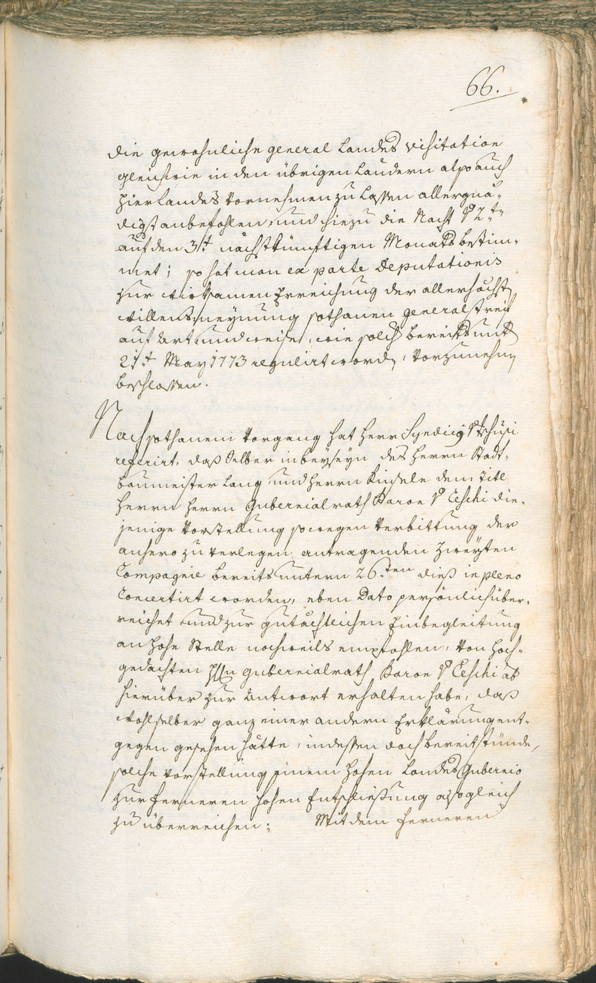 66.
die gewohnliche general Landes visitation
gleichwie in den übrigen Laendern also auch
hier Landes vornehmen zu Lassen allergnä-
digst anbefohlen, und hiezu die Nacht 2t
auf den 3t nächstkünftigen Monats bestim-
met; so hat man ex parte Deputationis
zur wirksamen Erreichung der allerhöchst
willensmeynung sothanen general streif
auf art und weise, wie solch bereits unt
21t May 1773 regulirt word, vorzunehm
beschlossen.
Nach sothanem Vorgang hat herr Syndicus
referirt, daß Selber in beyseyn des herrn Stadt-
baumeister Lang und herrn Kindele dem Titl
herrn herrn Gubernialrath Baron v Ceschi die-
jenige Vorstellung so wegen Verbittung der
anhero zu verlegen antragenden Zweyten
Compagnie bereits untern 26.ten dieß in pleno
Concertirt worden, eben Dato persönlich über-
reichet und zur gutächtlichen Einbegleitung
an hohe Stelle nochweils empfohlen, von hoch-
gedachten Hn Gubernialrath Baron v Ceschi ab
hierüber zur Antwort erhalten habe, daß
wohlselber ganz einer andern Erklärung ent-
gegen gesehen hätte, indessen doch bereit stünde,
solche Vorstellung einem hohen Landes Gubernio
zur ferneren hohen Entschließung alsogleich
zu überreichen; Mit dem ferneren